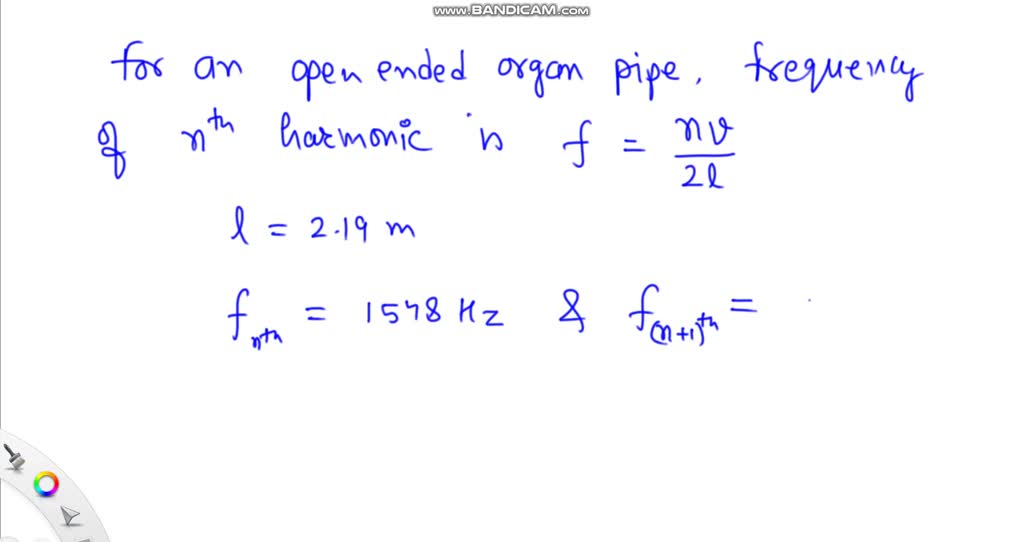 www.BANDICAM.com
for an open ended organ pipe, frequency
of nth harmonic is f = nv/2l
l = 2.19 m
f_nth = 1548 Hz & f_(n+1)th =